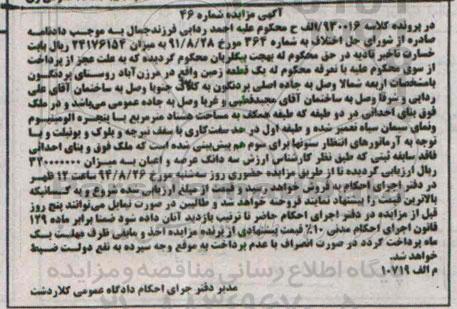 آگهی مزایده شماره ۴۶
در پرونده کلاسه ۹۳۰۰۱۶/الف ح محکوم علیه احمد ردایی فرزندجمال به موجب دادنامه
صادره از شورای حل اختلاف به شماره ۳۶۴ مورخ ۹۱/۸/۲۸ به میزان ۲۴۱۷۶۱۵۴ ریال بابت
خسارت تاخیر تادیه در حق محکوم له بهجت بیگلریان محکوم گردیده که به علت عجز از پرداخت
از سوی محکوم علیه با تعرفه محکوم له یک قطعه زمین واقع در مرزن آباد روستای بردنگون
بامشخصات اربعه شمالا وصل به جاده اصلی بردنگون به کلاک جنوبا وصل به ساختمان آقای علی
ردایی و شرقا وصل به ساختمان آقای مجیدقطبی و غربا وصل به جاده عمومی می‌باشد و در ملک
فوق بنای احداثی در دو طبقه که طبقه همکف به مساحت هشتاد مترمربع با پنجره الومینیوم
ونمای سیمان سیاه تعمیر شده و طبقه اول در حد سفت‌کاری با سقف تیرچه و بلوک و یونولیت و با
توجه به آرماتورهای انتظار ستونها برای سوم هم پیش‌بینی شده است که ملک فوق و بنای احداثی
فاقد سابقه ثبتی که طبق نظر کارشناس ارزش سه دانگ عرصه و اعیان به میزان ۳۲۰۰۰۰۰۰۰
ریال ارزیابی گردیده تا از طریق مزایده حضوری روز سه‌شنبه مورخ ۹۴/۸/۲۶ ساعت ۱۲ ظهر
در دفتر اجرای احکام به فروش خواهد رسید و قیمت از مبلغ ارزیابی شده شروع و به کسانیکه
بالاترین قیمت را پیشنهاد نمایند فروخته خواهد شد و طالبین در صورت تمایل می‌توانند پنج روز
قبل از مزایده در دفتر اجرای احکام حاضر تا ترتیب بازدید آنان داده شود ضمنا برابر ماده ۱۲۹
قانون اجرای احکام مدنی ۱۰٪ قیمت پیشنهادی از برنده مزایده اخذ و مابقی ظرف مهلت یک
ماه پرداخت گردد در صورت انصراف یا عدم پرداخت به موقع وجه سپرده به نفع دولت ضبط
خواهد شد.
م الف ۱۰۷۱۹
پایگاه اطلاع رسانی مناقصه و مزایده
مدیر دفتر جرای احکام دادگاه عمومی کلاردشت